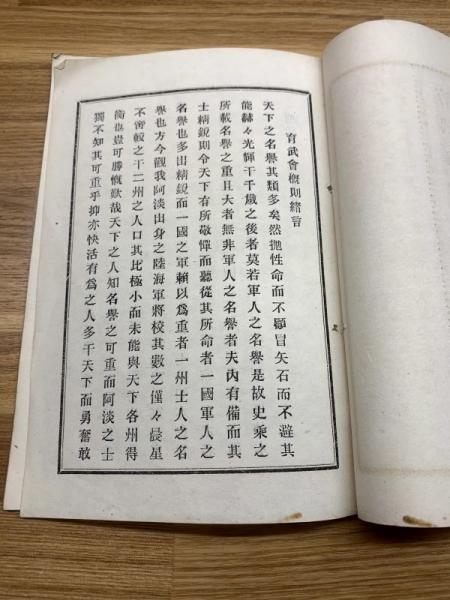 育武會概則緒言
天下之名譽其類多矣然抛性命而不顧冒矢石而不避其
能赫々光輝于千歲之後者莫若軍人之名譽是故史乘之
所載名譽之重且大者無非軍人之名譽者夫內有備而其
士精銳則令天下有所敬憚而聽從其所命者一國軍人之
名譽也多出精銳而一國之軍賴以爲重者一州士人之名
譽也方今觀我阿淡出身之陸海軍將校其數之僅々晨星
不啻較之于二州之人口其比極小而未能與天下各州得
衡也豈可勝慨歎哉天下之人知名譽之可重而阿淡之士
獨不知其可重乎抑亦快活有爲之人多于天下而勇奮敢